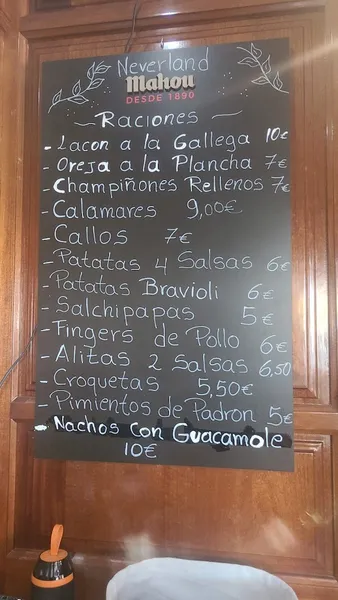 Neverland
Mahou
DESDE 1890
Raciones
- Lacon a la Gallega 10€
- Oreja a la Plancha 7€
- Champiñones Rellenos 7€
- Calamares 9,00€
- Callos 7€
- Patatas 4 Salsas 6€
- Patatas Bravioli 6€
- Salchipapas 5€
- Fingers de Pollo 6€
- Alitas 2 Salsas 6,50
- Croquetas 5,50€
- Pimientos de Padron 5€
- Nachos con Guacamole
10€